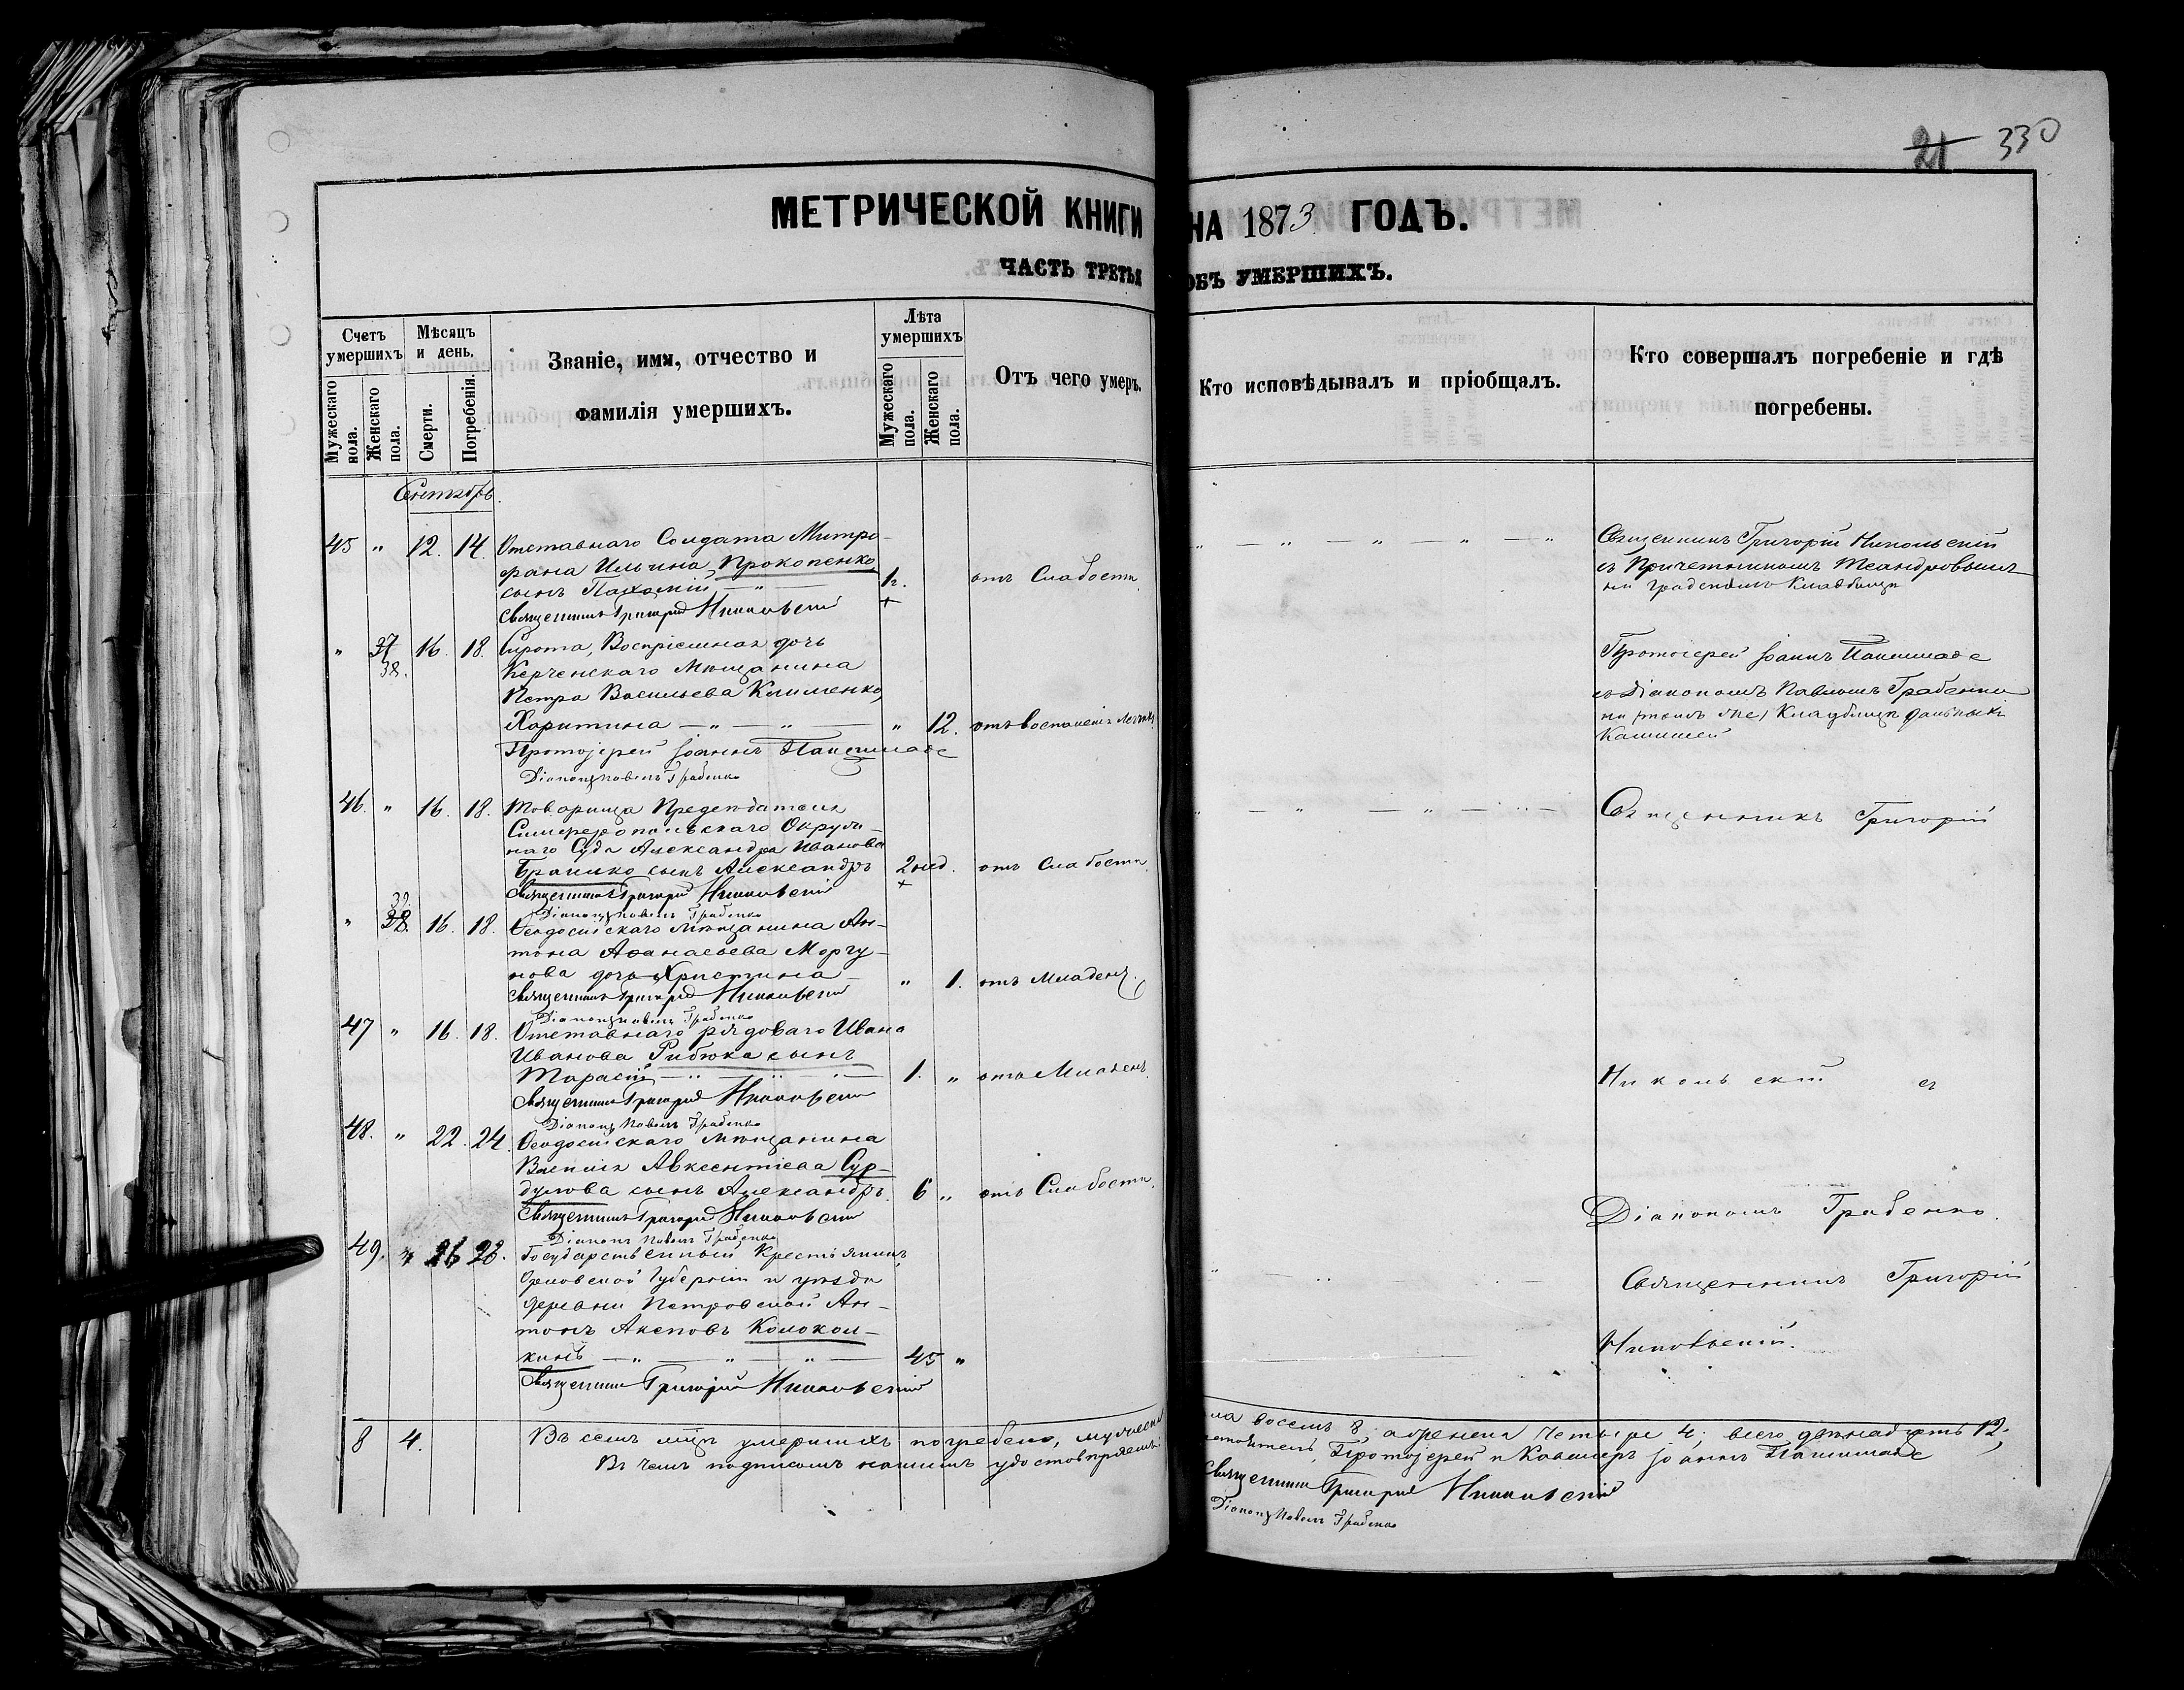 21 330
МЕТРИЧЕСКОЙ КНИГИ НА 1873 ГОДЪ.
ЧАСТЬ ТРЕТЬЯ ОБЪ УМЕРШИХЪ.
Счетъ умершихъ
Мужескаго пола.
Женскаго пола.
Мѣсяцъ и день.
Смерти.
Погребенія.
Званіе, имя, отчество и
фамилія умершихъ.
Лѣта умершихъ
Мужескаго пола.
Женскаго пола.
Отъ чего умеръ.
Кто исповѣдывалъ и пріобщалъ.
Кто совершалъ погребеніе и гдѣ
погребены.
Сентябрь.
45 " 12. 14. Отставнаго Солдата Митро-
фана Ильина Прокопенко,
сынъ — " — отъ Слабости
Священникъ Григорій Никольскій
Священникъ Григорій Никольскій
съ Причетникомъ
на градскомъ Кладбищѣ
" 37 38. 16. 18. Сирота, Воспріемная дочь
Керченскаго Мѣщанина
Петра Васильева Клименко,
Харитина — " — " — " 12. отъ воспаленія легкихъ
Протоіерей Іоаннъ
Діаконъ Павелъ Грабенко
Протоіерей Іоаннъ
съ Діакономъ Павломъ Грабенко
на Кладбищѣ
46. " 16. 18. Товарища Предсѣдателя
Симферопольскаго Окруж-
наго Суда Александра Иванова
сынъ Александръ 2 нед. отъ Слабости.
Священникъ Григорій Никольскій
Діаконъ Павелъ Грабенко
Священникъ Григорій
" 38. 39. 16. 18. Ѳеодосійскаго Мѣщанина Ан-
тона Аѳанасьева Моргу-
нова дочь Христина — " 1. отъ Младенч.
Священникъ Григорій Никольскій
Діаконъ Павелъ Грабенко
47 " 16. 18. Отставнаго рядоваго Ивана
Иванова Рибюка сынъ
Тарасій — " — " — 1. " отъ Младенч.
Священникъ Григорій Никольскій
Діаконъ Павелъ Грабенко
Никольскій съ
48. " 22. 24. Ѳеодосійскаго Мѣщанина
Василія Авксентіева Сур-
дулова сынъ Александръ. 6 " отъ Слабости.
Священникъ Григорій Никольскій
Діаконъ Павелъ Грабенко
Діакономъ Грабенко.
49. " 26 28. Государственный Крестьянинъ
Орловской Губерніи и уѣзда
деревни Петровской Ан-
тонъ Колокол-
кинъ — " — " — " — 45 "
Священникъ Григорій Никольскій
Священникъ Григорій
Никольскій.
8 4. Въ семъ мцѣ умершихъ погребено, восемь 8, а женска четыре 4; всего двѣнадцать 12;
Въ чемъ подписомъ нашимъ удостовѣряемъ: Протоіерей Іоаннъ
Священникъ Григорій Никольскій
Діаконъ Павелъ Грабенко